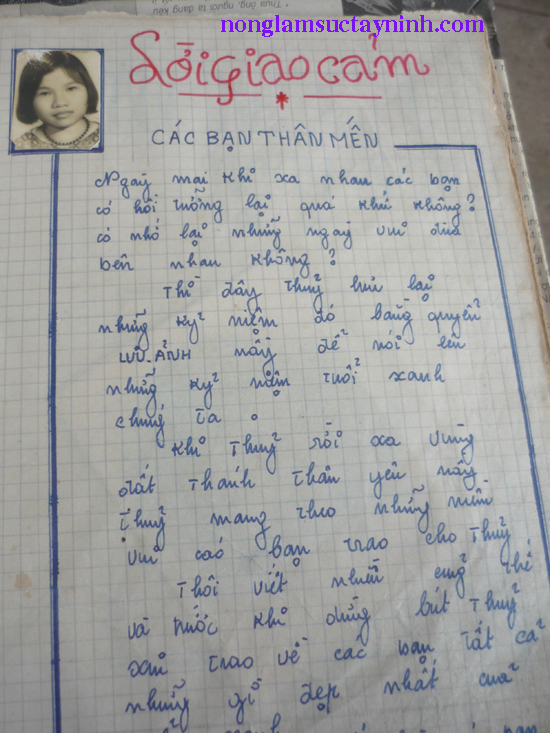 Thưa, ông, người ta đang kêu
nonglamsuctayninh.com
Lời Giao Cảm
CÁC BẠN THÂN MẾN
Ngày mai khi xa nhau các bạn
có hồi tưởng lại quá khứ không?
có nhớ lại những ngày vui đùa
bên nhau không?
Thì đây Thuỷ lưu lại
những kỷ niệm đó bằng quyển
LƯU ẢNH nầy để nói lên
những kỷ niệm tuổi xanh
chúng ta.
Khi Thuỷ rời xa vùng
đất thánh thân yêu nầy
Thuỷ mang theo những niềm
vui các bạn trao cho Thuỷ
Thôi viết nhiều cũng thế
và trước khi dừng bút Thuỷ
xin trao về các bạn tất cả
những gì đẹp nhất của